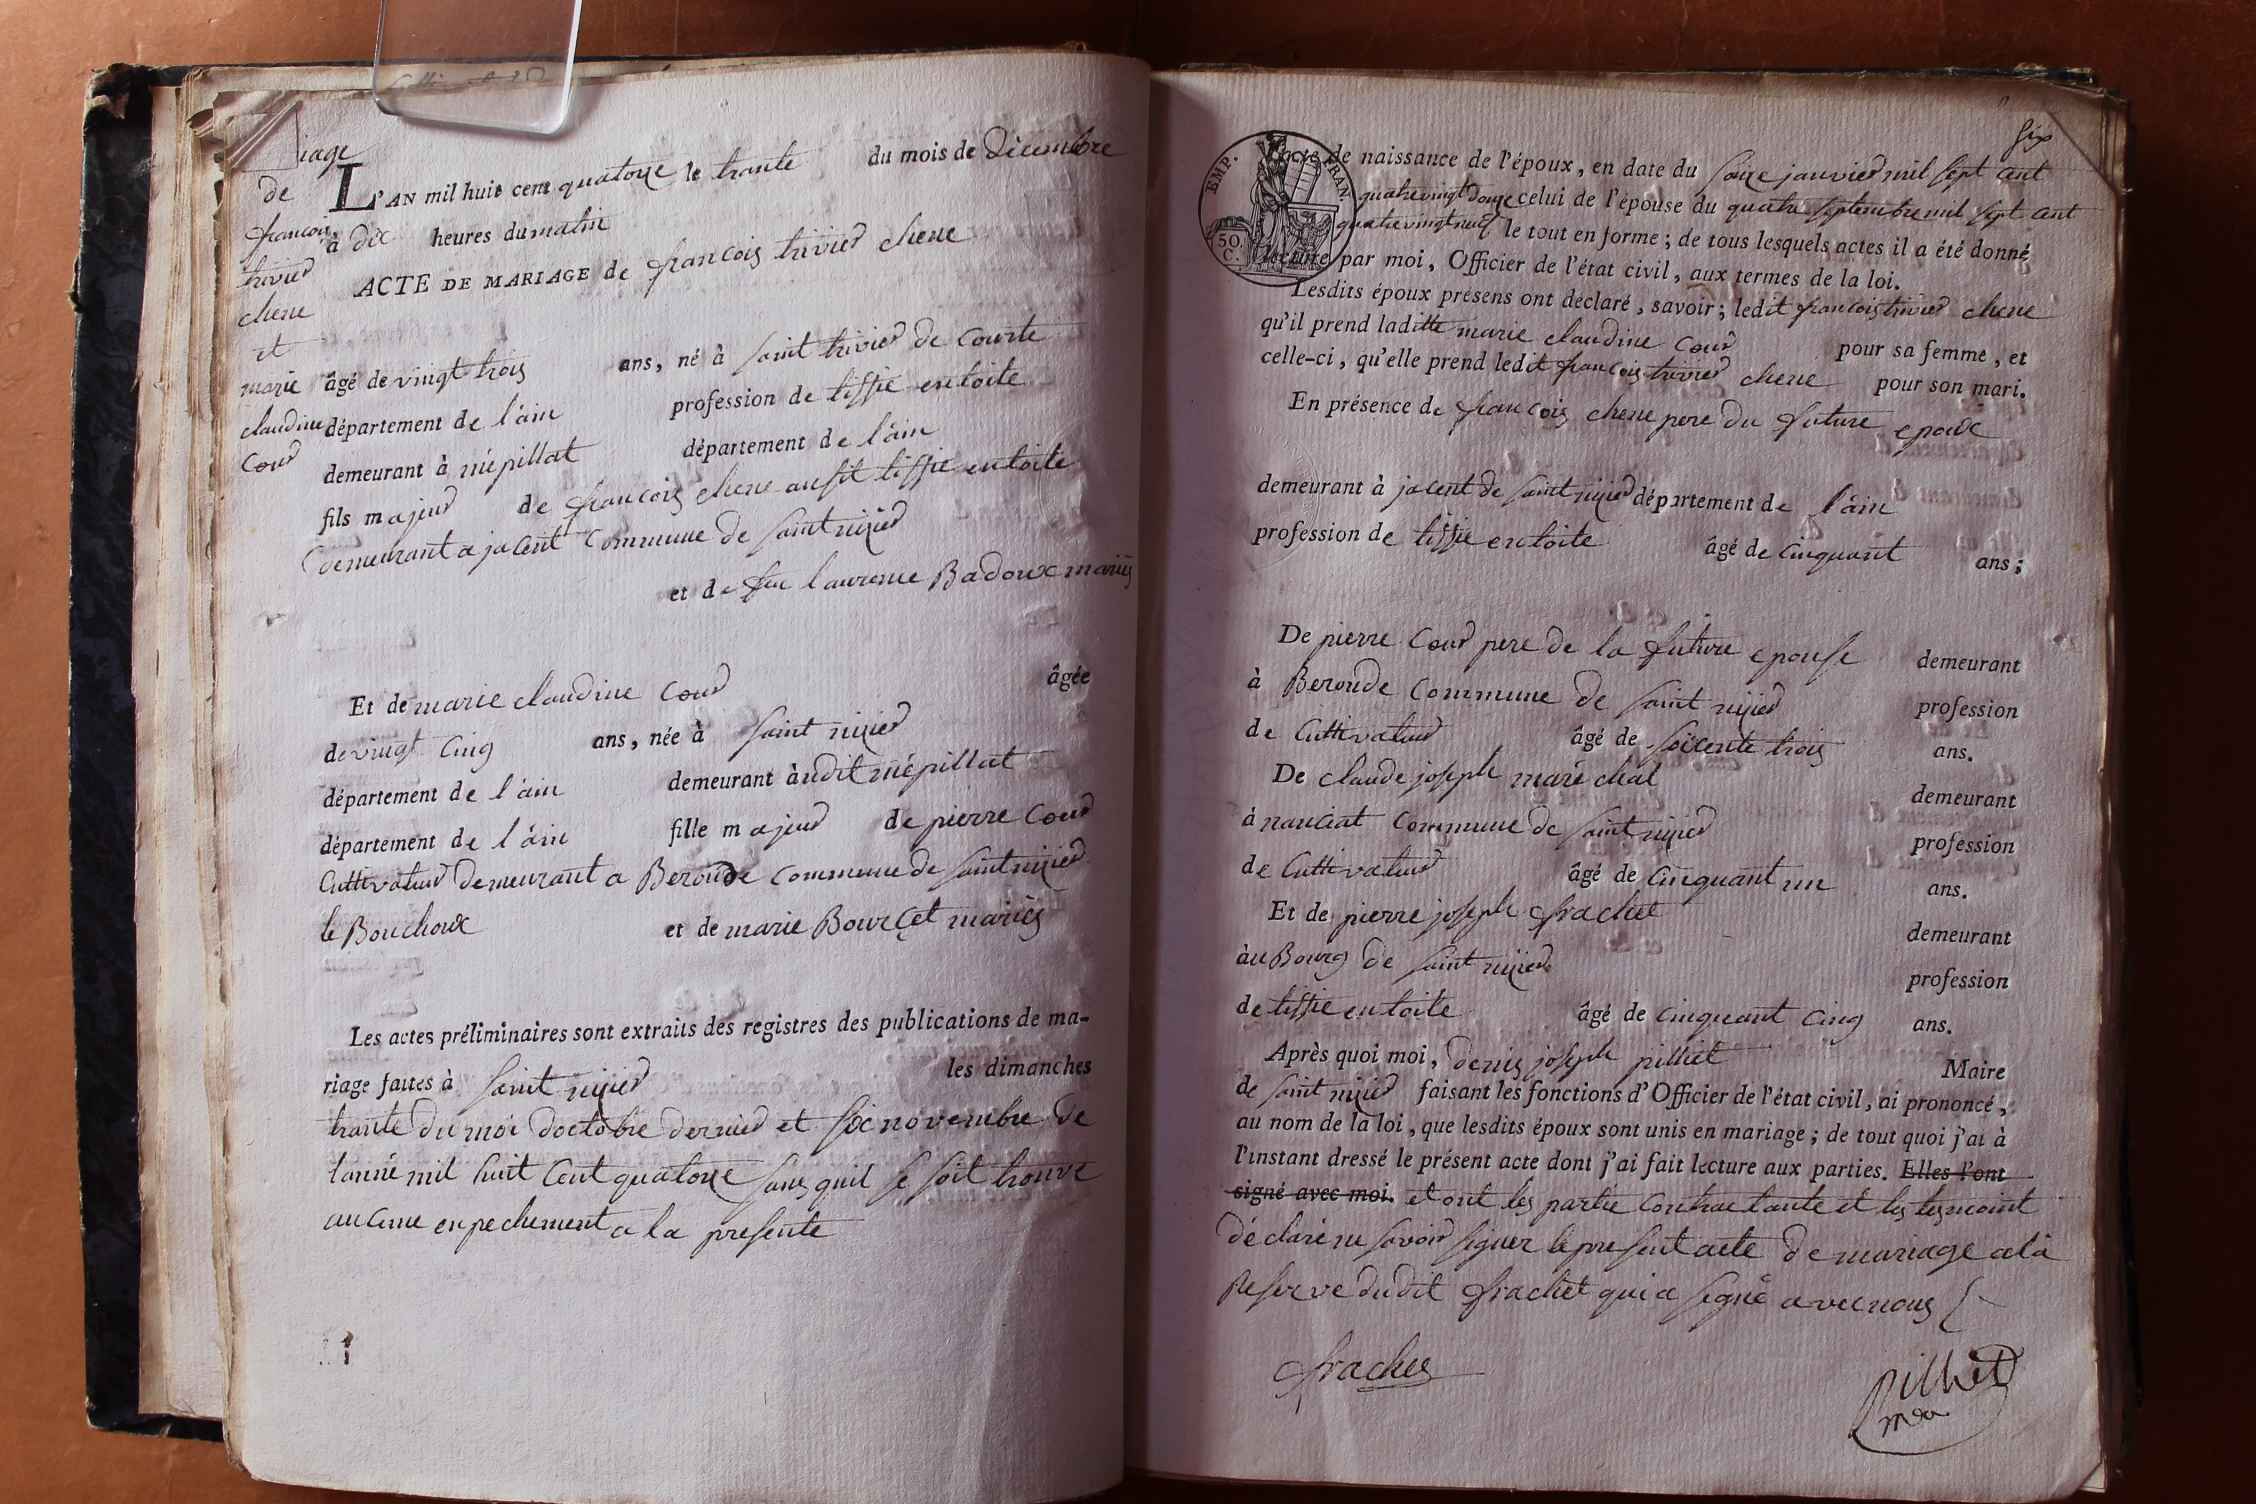 iage
de
francois
trivier
chene
et
marie
claudine
Cour
L'AN mil huit cent quatorze le trante du mois de Décembre
à dix heures du matin
ACTE DE MARIAGE de francois trivier chene
âgé de vingt trois ans, né à saint trivier de Courte
département de l'âin profession de tissie en toile
demeurant à mépillat département de l'âin
fils majeur de francois chene ausit tissie en toile
Demeurant a jacent Commune de saint nizier
et de feu laurence Badoux mariés
Et de marie claudine Cour âgée
de vingt Cinq ans, née à saint nizier
département de l'âin demeurant àudit mépillat
département de l'âin fille majeur de pierre Cour
Cultivateur Demeurant a Beroude Commune de saint nizier
le Bouchoux et de marie Bourcet mariés
Les actes préliminaires sont extraits des registres des publications de ma-
riage faites à saint nizier les dimanches
trante du moi doctobre dernier et six novembre de
lanné mil huit Cent quatorze sans quil se soit trouve
aucune enpechement a la presente
six
acte de naissance de l'époux, en date du saize janvier mil sept Cent
quatre vingt douze celui de l'épouse du quatre septembre mil sept Cent
quatre vingt neuf le tout en forme; de tous lesquels actes il a été donné
lecture par moi, Officier de l'état civil, aux termes de la loi.
EMP. FRAN.
50.
C.
Lesdits époux présens ont déclaré, savoir; ledit francois trivier chene
qu'il prend laditte marie claudine Cour pour sa femme, et
celle-ci, qu'elle prend ledit francois trivier chene pour son mari.
En présence de francois chene pere du future epoux
demeurant à jacent de saint nizier département de l'âin
profession de tissie en toile âgé de Cinquant ans;
De pierre Cour pere de la future epouse demeurant
à Beroude Commune de saint nizier profession
de Cultivateur âgé de soixcente trois ans.
De claude joseph maréchal demeurant
à nanciat Commune de saint nizier profession
de Cultivateur âgé de Cinquant un ans.
Et de pierre joseph frachet demeurant
àu Bourg de saint nizier profession
de tissie en toile âgé de Cinquant Cinq ans.
Après quoi moi, denis joseph pilliet Maire
de saint nizier faisant les fonctions d'Officier de l'état civil, ai prononcé,
au nom de la loi, que lesdits époux sont unis en mariage; de tout quoi j'ai à
l'instant dressé le présent acte dont j'ai fait lecture aux parties. Elles l'ont
signé avec moi. et ont les partie Contractante et les tesmoint
déclaré ne savoir signer le present acte de mariage a la
Reserve dudit frachet qui a signé avec nous
frachet
Pilliet